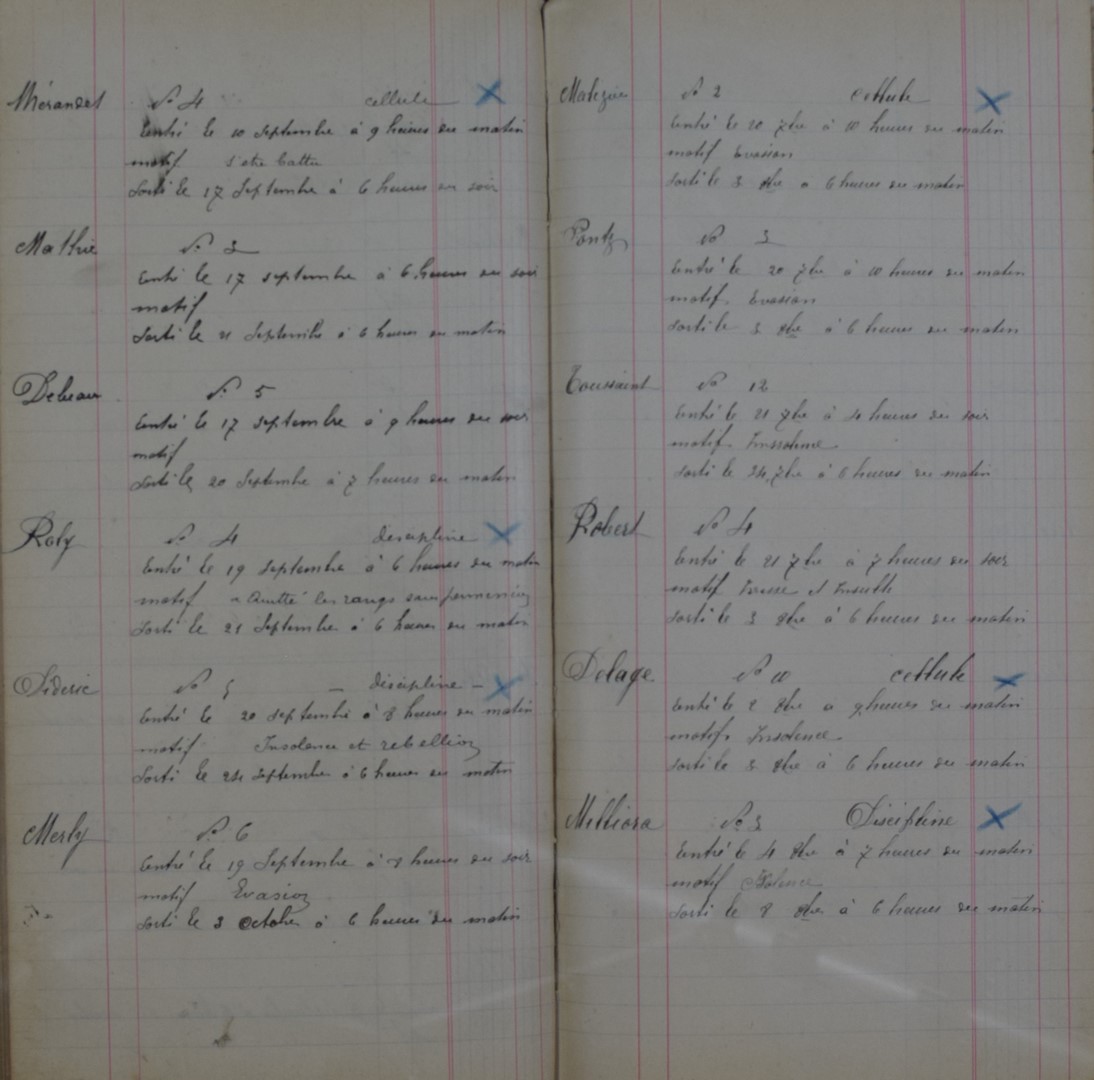 Mérandet N° 4 cellule
Entré le 10 Septembre à 9 heures du matin
motif s'etre battu
Sorti le 17 Septembre à 6 heures du soir
Mathie N° 3
Entré le 17 septembre à 6 heures du soir
motif
Sorti le 21 Septembre à 6 heures du matin
Debeaux N° 5
Entré le 17 septembre à 9 heures du soir
motif
Sorti le 20 Septembre à 7 heures du matin
Roly N° 4 discipline
Entré le 19 Septembre à 6 heures du matin
motif a Quitté les rangs sans permission
Sorti le 21 Septembre à 6 heures du matin
Dideric N° 5 – discipline –
Entré le 20 septembre à 8 heures du matin
motif Insolence et rebellion
Sorti le 24 Septembre à 6 heures du matin
Merly N° 6
Entré le 19 Septembre à 8 heures du soir
motif Evasion
Sorti le 3 Octobre à 6 heures du matin
N° 2 cellule
Entré le 20 7bre à 10 heures du matin
motif Evasion
Sorti le 3 8bre a 6 heures du matin
Pontz N° 3
Entré le 20 7bre à 10 heures du matin
motif. Evasion
Sorti le 3 8bre à 6 heures du matin
Toussaint N° 12
Entré le 21 7bre à 4 heures du soir
motif Inssolence
Sorti le 24 7bre à 6 heures du matin
Robert N° 4
Entré le 21 7bre à 7 heures du soir
motif et Insulte
Sorti le 3 8bre à 6 heures du matin
Delage N° 10 cellule
Entré le 2 8bre a 9 heures du matin
motif Insolence
Sorti le 5 8bre à 6 heures du matin
Melliora N° 3 Discipline
Entré le 4 8bre à 7 heures du matin
motif
Sorti le 8 8bre à 6 heures du matin